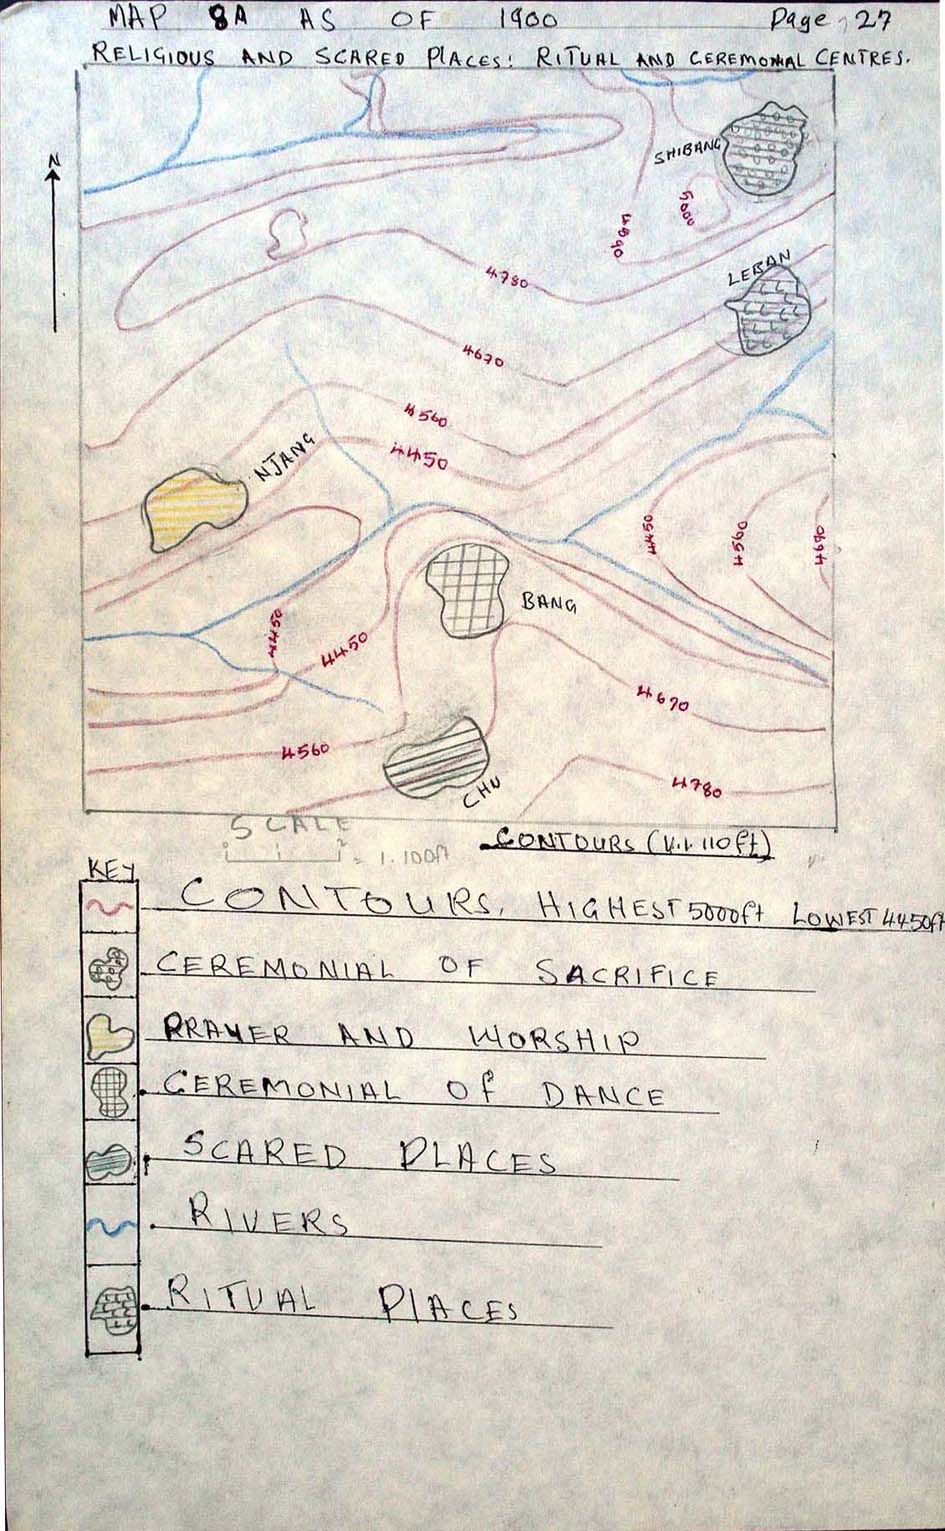 MAP 8A AS OF 1900 Page, 27
RELIGIOUS AND SCARED PLACES: RITUAL AND CEREMONIAL CENTRES.
N
SHIBANG
5000
4890
LEBAN
4780
4670
4560
4450
NJANG
4450
4560
4670
BANG
4450
4450
4670
4560
CHU
4780
SCALE
CONTOURS (V.I. 110ft)
= 1.100ft
KEY
CONTOURS. HIGHEST 5000ft LOWEST 4450ft
CEREMONIAL OF SACRIFICE
PRAYER AND WORSHIP
CEREMONIAL Of DANCE
SCARED PLACES
RIVERS
RITUAL PLACES